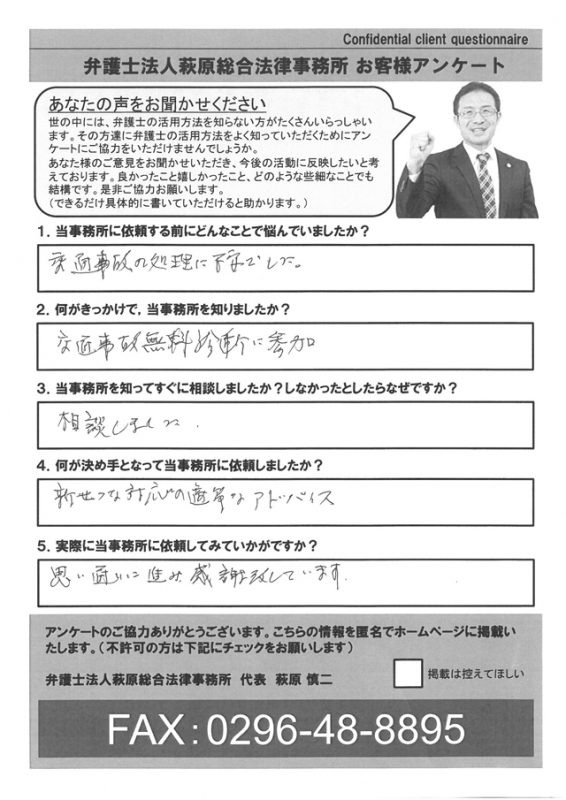 Confidential client questionnaire
弁護士法人萩原総合法律事務所 お客様アンケート
あなたの声をお聞かせください
世の中には、弁護士の活用方法を知らない方がたくさんいらっしゃい
ます。その方達に弁護士の活用方法をよく知っていただくためにアン
ケートにご協力をいただけませんでしょうか。
あなた様のご意見をお聞かせいただき、今後の活動に反映したいと考
えております。良かったこと嬉しかったこと、どのような些細なことでも
結構です。是非ご協力お願いします。
(できるだけ具体的に書いていただけると助かります。)
1．当事務所に依頼する前にどんなことで悩んでいましたか?
交通事故の処理に不安でした。
2．何がきっかけで，当事務所を知りましたか?
交通事故無料診断に参加
3．当事務所を知ってすぐに相談しましたか?しなかったとしたらなぜですか?
相談しました.
4．何が決め手となって当事務所に依頼しましたか?
対応の適筆なアドバイス
5．実際に当事務所に依頼してみていかがですか?
思い通りに進み感謝致しています.
アンケートのご協力ありがとうございます。こちらの情報を匿名でホームページに掲載い
たします。(不許可の方は下記にチェックをお願いします)
弁護士法人萩原総合法律事務所 代表 萩原 慎二
掲載は控えてほしい
FAX:0296-48-8895